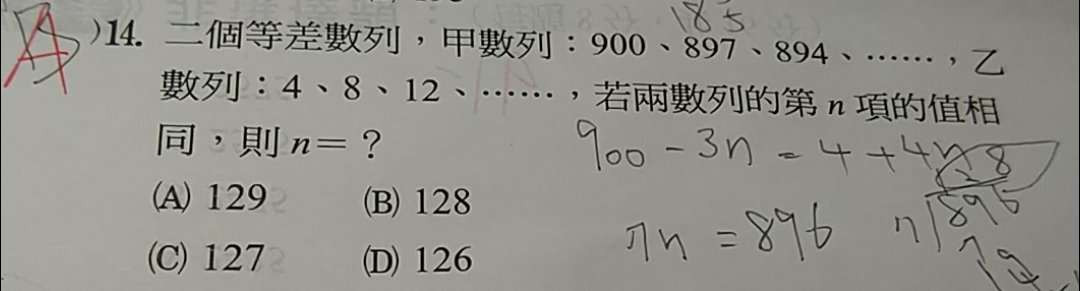 185
A)14. 二個等差數列，甲數列：900、897、894、……，乙
數列：4、8、12、……，若兩數列的第 n 項的值相
同，則 n＝？
900 - 3n = 4 + 4n
(A) 129 (B) 128
7n = 896
(C) 127 (D) 126